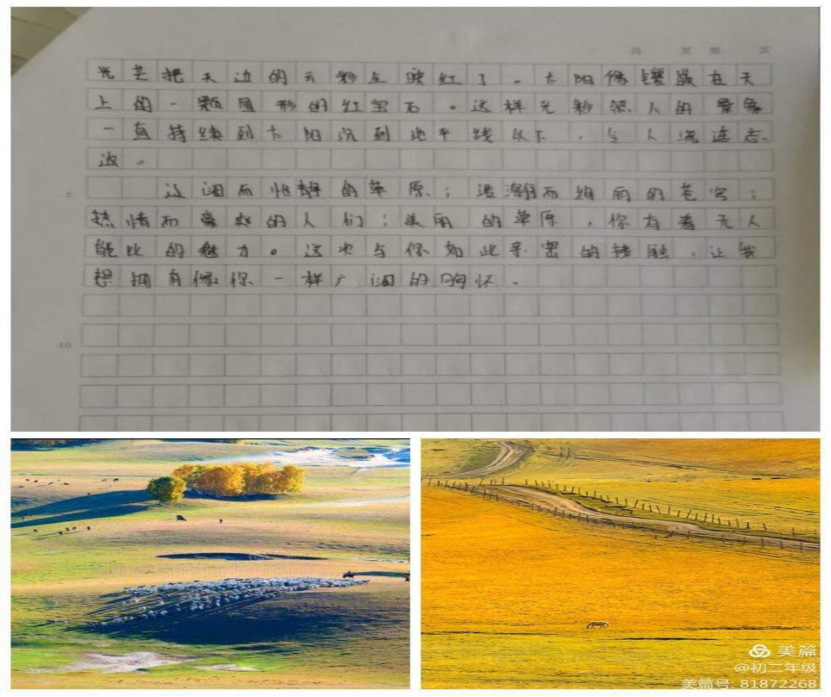 共 页 第 页
光芒把天边的云彩映红了。太阳像镶嵌在天
上的一颗圆形的红宝石。这样光彩照人的景象
一直持续到太阳沉到地平线以下，令人流连忘
返。
5 辽阔而恬静的草原；浩瀚而绚丽的苍穹；
热情而豪放的人们；美丽的草原，你有着无人
能比的魅力。这次与你如此亲密的接触，让我
想拥有像你一样广阔的胸怀。
10
美篇
@初二年级
美篇号: 81872268